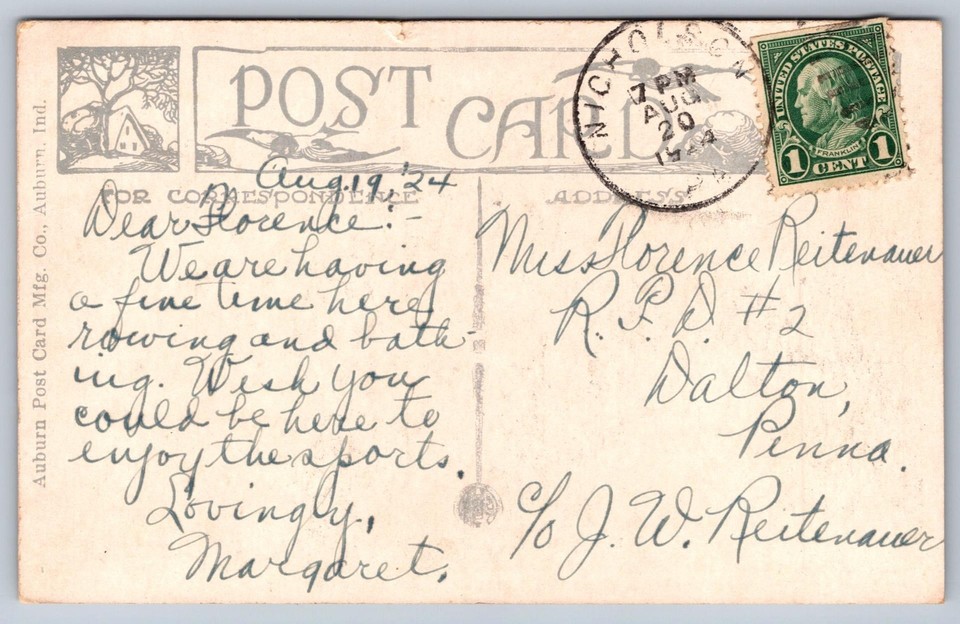 Auburn Post Card Mfg. Co., Auburn, Ind.
POST CARD
FOR CORRESPONDENCE
ADDRESS
Aug. 19, '24
Dear Florence:-
We are having
a fine time here
rowing and bath-
ing. Wish you
could be here to
enjoy the sports.
Lovingly,
Margaret.
NICHOLSON
7 PM
AUG
20
1924
PA
UNITED STATES POSTAGE
FRANKLIN
1 CENT 1
Miss Florence Reitenauer
R. F. D. #2
Dalton,
Penna.
c/o J. W. Reitenauer